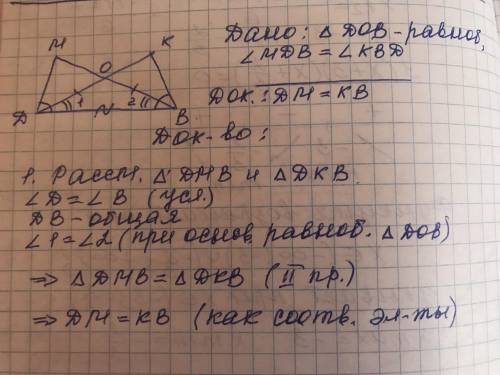 М
К
О
1
2
Д
N
В
Дано: △ DOB - равноб,
∠MDB = ∠KBD
Док.: DM = KB
Док-во:
1. Рассм. △ DMB и △ DKB.
∠D = ∠B (усл.)
DB - общая
∠1 = ∠2 (при основ. равноб. △ DOB)
⇒ △ DMB = △ DKB (II пр.)
⇒ DM = KB (как соотв. эл-ты)